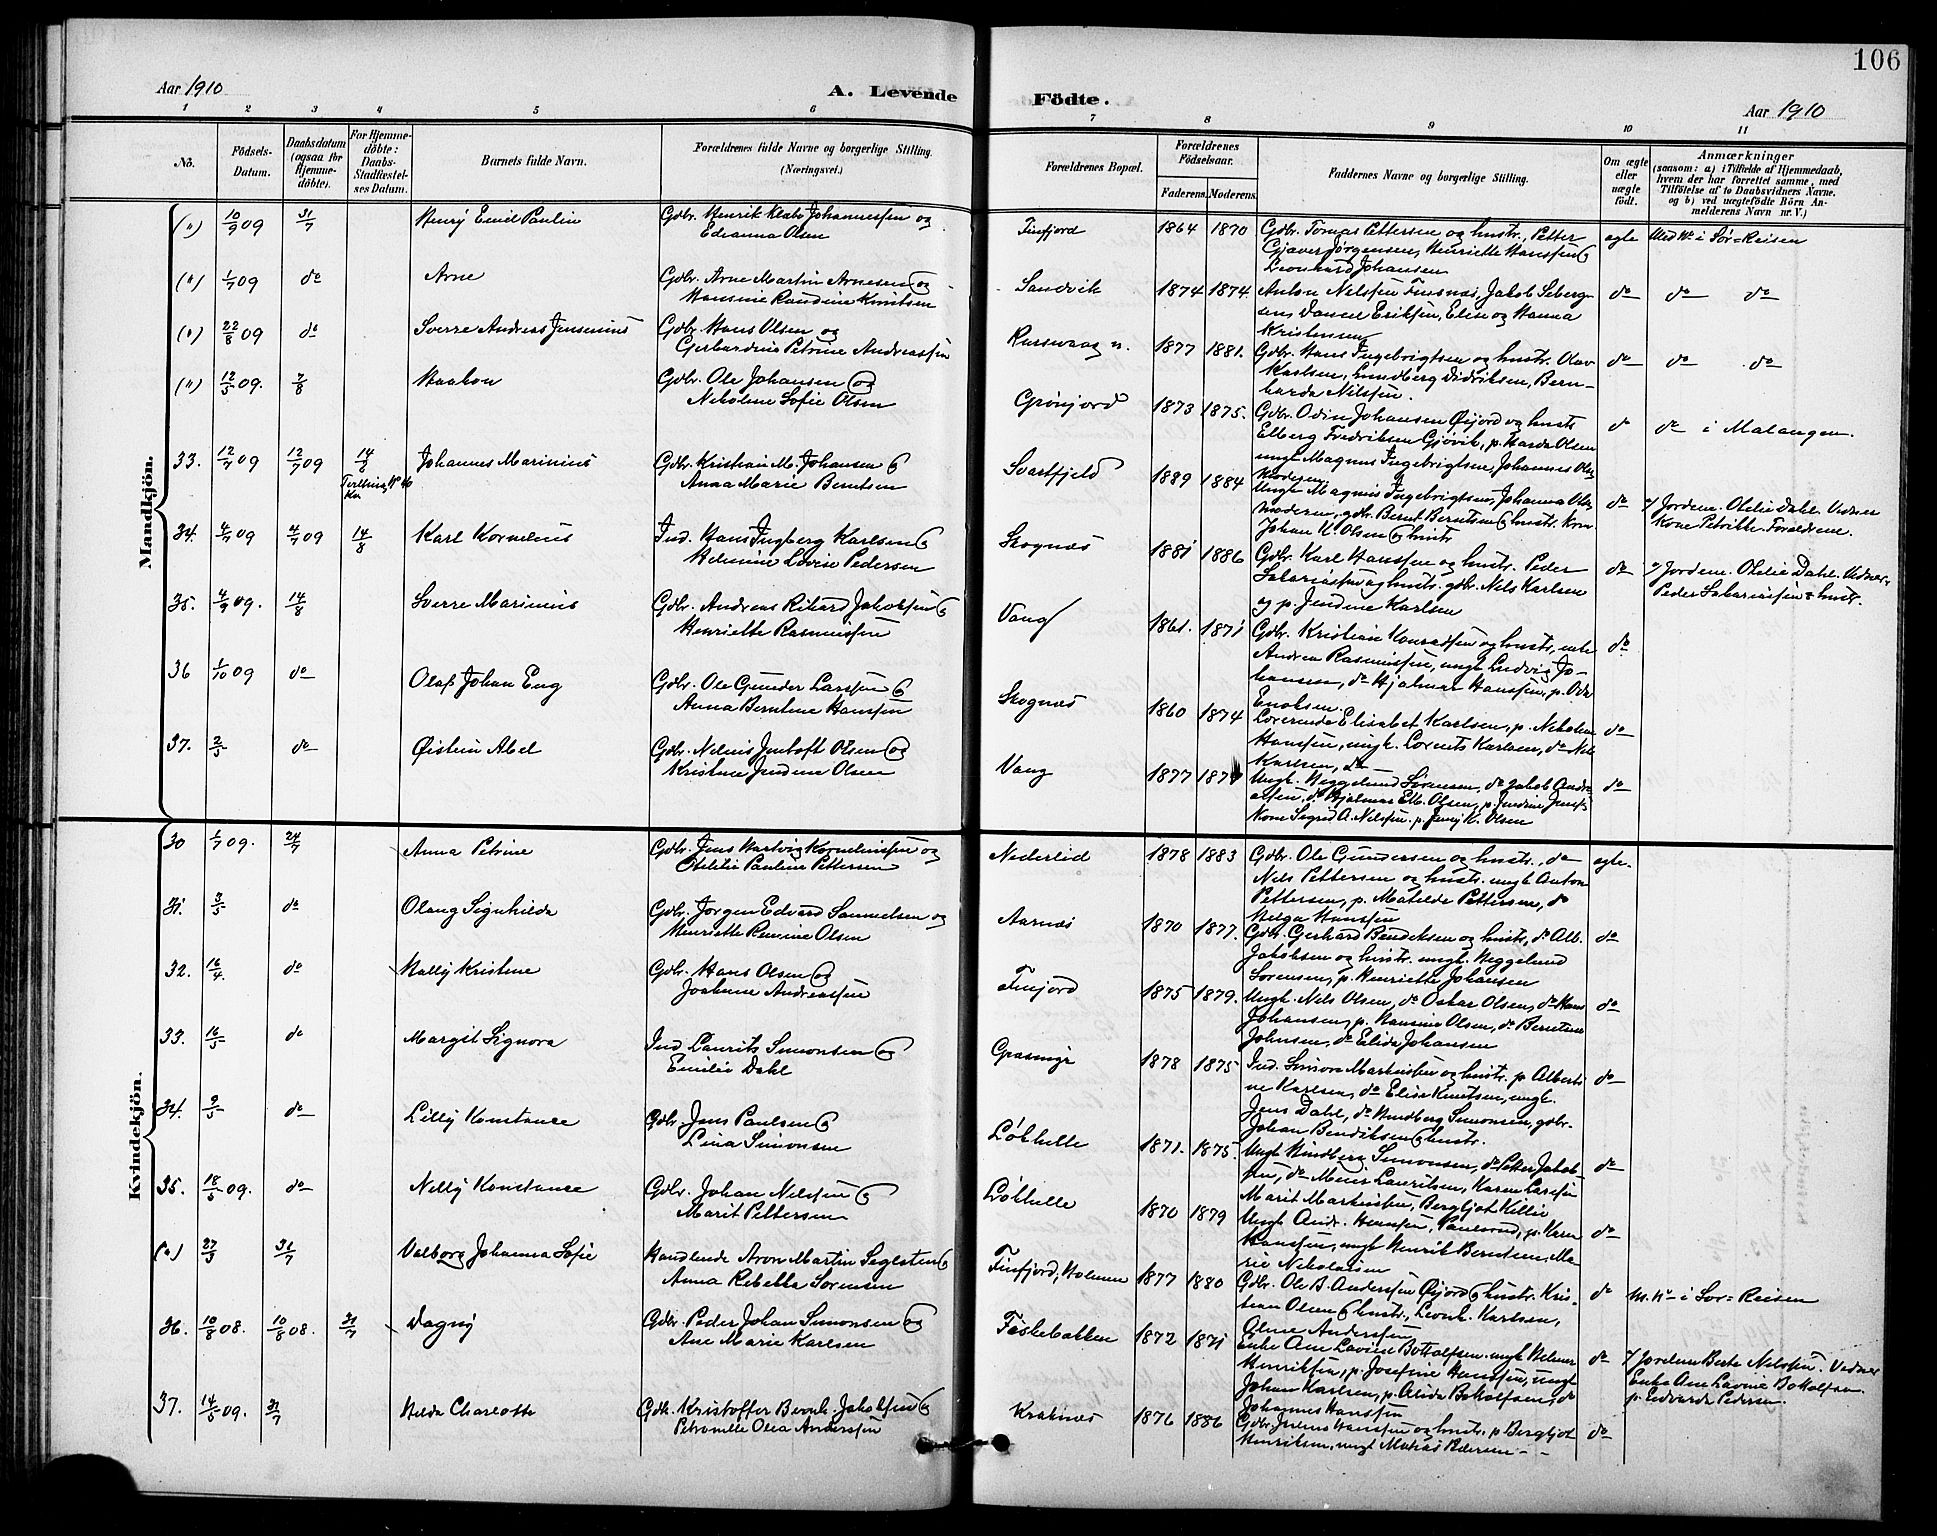 106
Aar 1910
A. Levende Födte.
Aar 1910
1 2 3 4 5 6 7 8 9 10 11
Nö.
Födsels-Datum.
Daabsdatum (ogsaa för Hjemme-döbte).
For Hjemme-döbte: Daabs-Stadfæstel-ses Datum.
Barnets fulde Navn.
Forældrenes fulde Navne og borgerlige Stilling. (Næringsvei.)
Forældrenes Bopæl.
Forældrenes Födselsaar.
Faderens. Moderens.
Faddernes Navne og borgerlige Stilling.
Om ægte eller uægte födt.
Anmærkninger
(saasom: a) i Tilfælde af Hjemmedaab, hvem der har forrettet samme, med Tilföielse af to Daabsvidners Navne, og b) ved uægtefödte Börn An-melderens Navn nr. V.)
Mandkjön.
(") 10/9 09 31/7 Henry Emil Paulin Gdbr. Henrik Klæbo Johannessen og
Edianna Olsen
Finfjord 1864 1870 Gdbr. Tomas Pettersen og hustr., Petter
Gjæver Jørgensen, Henriette Hanssen &
Leonhard Johansen
ægte Med No i Sør-Reisen
(") 1/7 09 do Arne Gdbr. Arne Martin Arnesen og
Hansine Randine Knutsen
Sandvik 1874 1874 Anton Nilssen Finsnæs, Jakob Seberg-
sen, Daniel Eriksen, Elise og Hanna
Kristensen
do do do
(") 22/8 09 do Sverre Andreas Jensenius Gdbr. Hans Olsen og
Gerhardine Petrine Andreassen
1877 1881. Gdbr. Hans Ingebrigtsen og hustr. Olav
Karlsen, Lundberg Didriksen, Bern-
harda Nilssen.
do do do
(") 12/5 09. 7/8 Haakon Gdbr. Ole Johansen og
Nikoline Sofie Olsen
Grønjord 1873 1875. Gdbr. Odin Johansen Øijord og hustr.
Elberg Fredriksen Gjövik, p. Harda Olsen
ungk Magnus Ingebrigtsen, Johannes Ols.
do do i Malangen.
33. 12/7 09 12/7 09 14/8 Johannes Marinius Gdbr. Kristian M. Johansen &
Anna Marie Berntsen
Svartfjeld 1889 1884 Ungk. Magnus Ingebrigtsen, Johanna Ols.
gdbr. Bernt Berntsen & hustr.
Johan U. Olsen & hustr
do v/ Jordem. Otelie Dahl. Vidner
Kone Petrikke. Forældrene.
34. 4/7 09 4/7 09 14/8 Karl Kornelius Ind. Hans Ingberg Karlsen &
Helmine Lovise Pedersen
Skognæs 1881 1886 Gdbr. Karl Hanssen og hustr. Peder
Sakariassen og hustr. gdbr. Nels Karlsen
og p. Jendine Karlsen
do v/ Jordem. Otelie Dahl. Vidner,
Peder Sakariassen & hustr.
35. 4/9 09. 14/8 Sverre Marinius Gdbr. Andreas Rikard Jakobsen &
Henriette Rasmussen
Vang 1861. 1871 Gdbr. Kristian Konradsen og hustr.,
Andrea Rasmussen, ungk Ludvig Jo-
hansen, do Hjalmar Hanssen, p.
Enoksen.
do
36 1/10 09 do Olaf Johan Eng Gdbr. Ole Gunder Larssen &
Anna Berntine Hanssen
Skognæs 1860 1874 Elisabet Karlsen, p. Nikoline
Hanssen, ungk. Lorents Karlsen, do Nils
Karlsen, do
do
37. 2/5 do Øistein Abel Gdbr. Nelius Jentoft Olsen og
Kristine Jendine Olsen
Vang 1877 Ungk. Heggelund Sörensen, do Jakob Andre-
assen, do Hjalmar Elb. Olsen, p. Jendine
Kone Sigrid A. Nilssen. p. Jenny K. Olsen
do
Kvindekjön.
30 1/7 09. 24/7 Anna Petrine Gdbr. Jens Hartvig Korneliussen og
Otelie Pauline Pettersen
Nederlid 1878 1883 Gdbr. Ole Gundersen og hustr., do
Nils Pettersen og hustr. ungk Anton
Pettersen, p. Matilde Pettersen, do
Helga Hanssen
ægte.
31. 3/5 do Olaug Signhilda Gdbr. Jørgen Edvard Samuelsen og
Henriette Remine Olsen
Aarnæs 1870 1877. Gdbr. Gerhard Bendiksen og hustr., do Alb.
Jakobsen og hustr. ungk. Heggelund
Sorensen, p. Henriette Johansen
do
32. 16/4 do Hally Kristine Gdbr. Hans Olsen &
Joakime Andreassen
Finjord 1875 1879. Ungk. Nils Olsen, do Oskar Olsen, do Hans
Johansen, p. Hansine Olsen, do Berntine
Johnsen, do Elida Johansen
do
33. 16/5 do Margit Signora Ind. Laurits Simonsen &
Emilie Dahl
Grasmyr 1878 1875 Ind. Simon Martinssen og hustr. p Alberti-
ne Karlsen, do Elise Knutsen, ungk.
Jens Dahl, do Hindberg Simonsen, gdbr.
Johan Bendiksen & hustr.
do
34. 9/5 do Lilly Konstance Gdbr. Jens Paulsen &
Lina Simonsen
Løkhelle 1871. 1875. Ungk Hindberg Simonsen, do Petter Jakob-
sen, do Meier Lauritsen, Karen Larssen
Marit Martinssen, Bergljot Killie
do
35. 18/5 09. do Nelly Konstance Gdbr. Johan Nilssen &
Marit Pettersen
Løkhelle 1870 1879 Ungk Andr. Hanssen, p. Karen
Hanssen, ungk Henrik Berntsen, Ma-
rie Nikolaisen
do
(") 27/3 31/7 Valborg Johanna Sofie Handlende Aron Martin Seglsten &
Anna Rebekka Sorensen
Finfjord, Holmen 1877 1880 Gdbr. Ole A. Anderssen Øijord & hustr. Kris-
tian Olsen & hustr., Leonh. Karlsen,
Oline Anderssen
do M. No i Sør-Reisen
36. 10/8 08. 10/8 08. 31/7 Dagny Gdbr. Peder Johan Simonsen &
Ane Marie Karlsen
Fiskebakken 1872 1871 Enke Ane Lavine Bottolfsen. ungk Helmer
Henriksen, p. Josefine Hanssen, ungk
Johan Karlsen, p. Alida Bottolfsen, do
Johannes Hanssen
do v/ Jordem Berte Nilssen. Vidner
Enke Ane Lavine Bottolfsen
p. Edvarda Pedersen.
37. 14/5 09. 31/7 Hilda Charlotte Gdb. Kristoffer Bernh. Jakobsen &
Petronille Olea Anderssen
Kraknæs 1876 1886 Gdbr. Julius Hanssen og hustr., p Bergljot
Henriksen, ungk Matias Pedersen
do